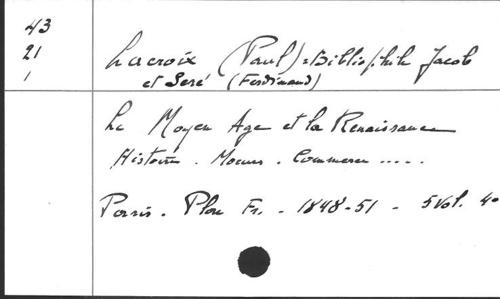 43
21
1
Lacroix (Paul) = Bibliophile Jacob
et Seré (Ferdinand)
Le Moyen Age et la Renaissance
Histoire . Moeurs . Commerce .....
Paris . Plon Fr. - 1848-51 - 5 Vol. 4o